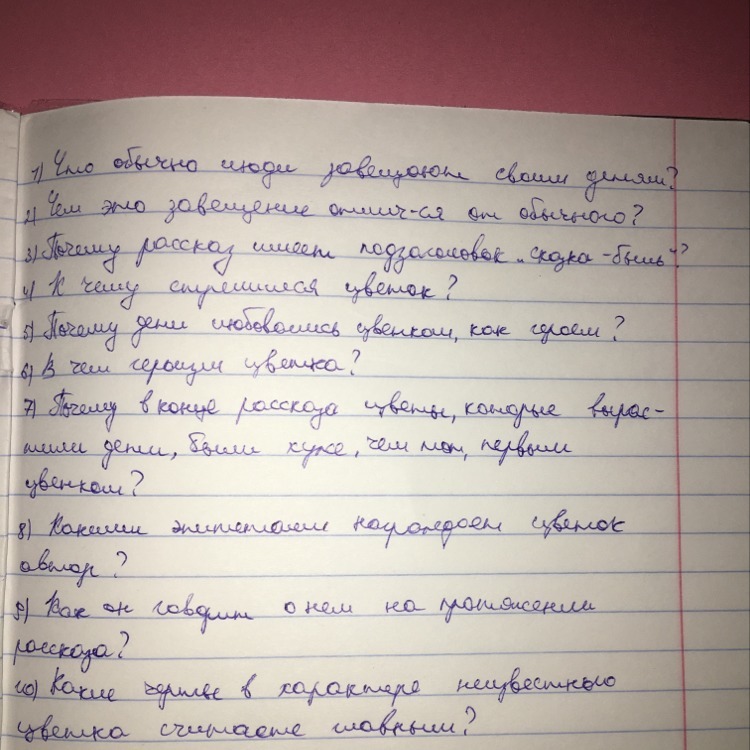 1) Что обычно люди завещают своим детям?
2) Чем это завещение отлич-ся от обычного?
3) Почему рассказ имеет подзаголовок „сказка-быль"?
4) К чему стремился цветок?
5) Почему дети любовались цветком, как героем?
6) В чем героизм цветка?
7) Почему в конце рассказа цветы, которые вырас-
тили дети, были хуже, чем тот, первый
цветком?
8) Какими эпитетами награждает цветок
автор?
9) Как он говорит о нем на протяжении
рассказа?
10) Какие черты в характере неизвестного
цветка считаете главными?